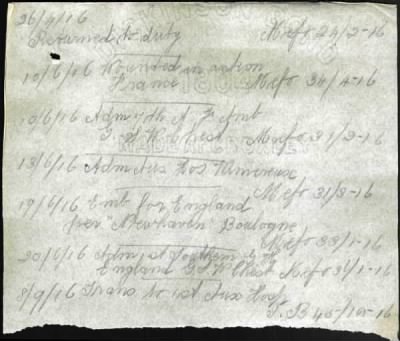 26/4/16
Returned to duty Mefo 24/2-16
10/6/16 Wounded in action
France Mefo 34/4-16
10/6/16 Adm 7th A F Amb
G. S. W. Chest Mefo 31/3-16
13/6/16 Adm Aus Hos Wimereux
Mefo 31/3-16
19/6/16 Emb for England
per "Newhaven" Boulogne
Mefo 33/1-16
20/6/16 Adm 1st Southern G H
England G S W Chest Mefo 36/1-16
8/9/16 Trans to 1st Aux Hosp